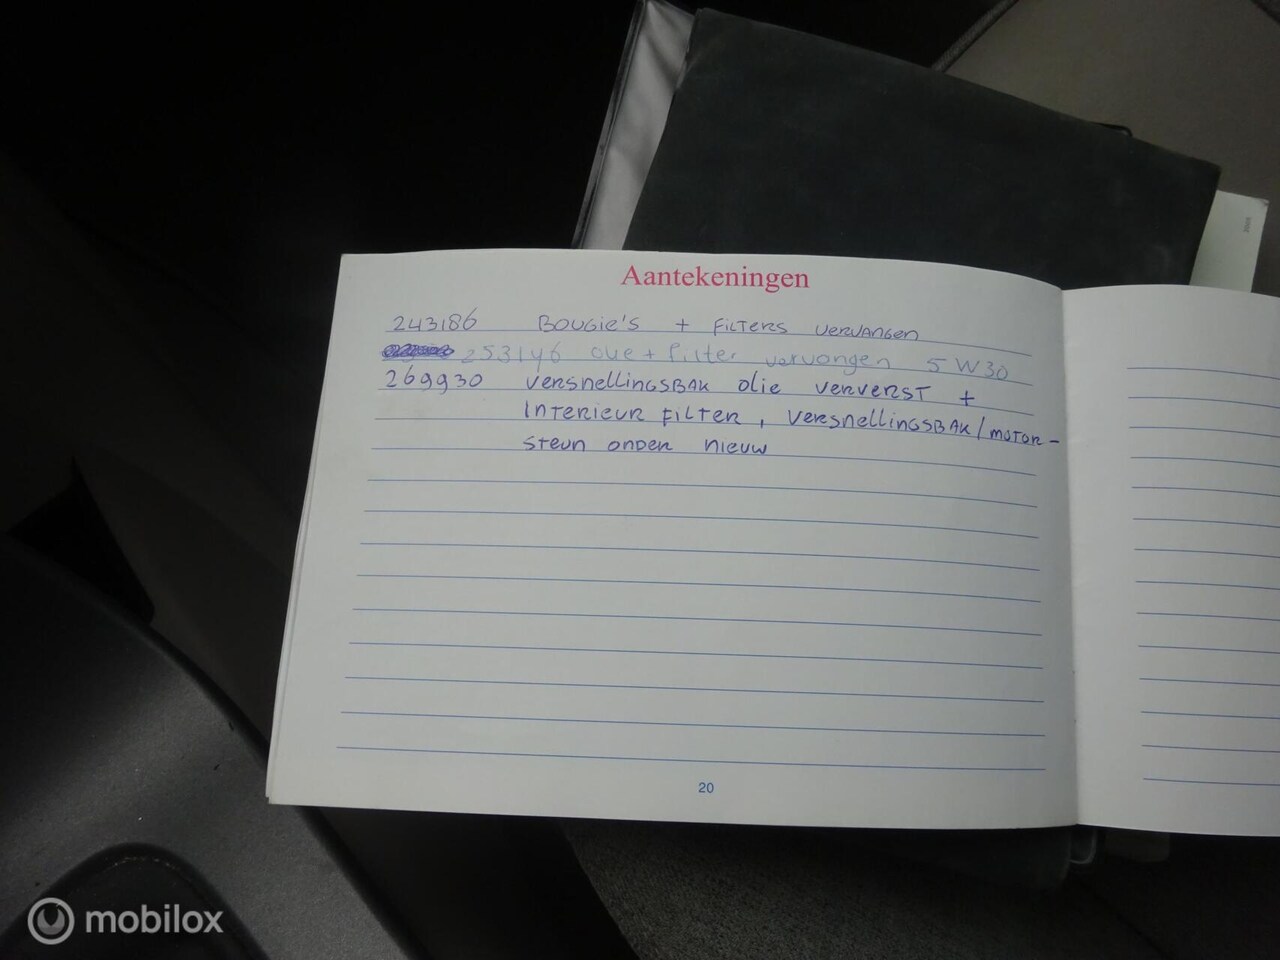 Aantekeningen
243186 BOUGIE'S + FILTERS VERVANGEN
253146 olie + filter vervangen 5W30
269930 VERSNELLINGSBAK OLIE VERVERST +
INTERIEUR FILTER, VERSNELLINGSBAK/MOTOR-
STEUN ONDER NIEUW
20
mobilox